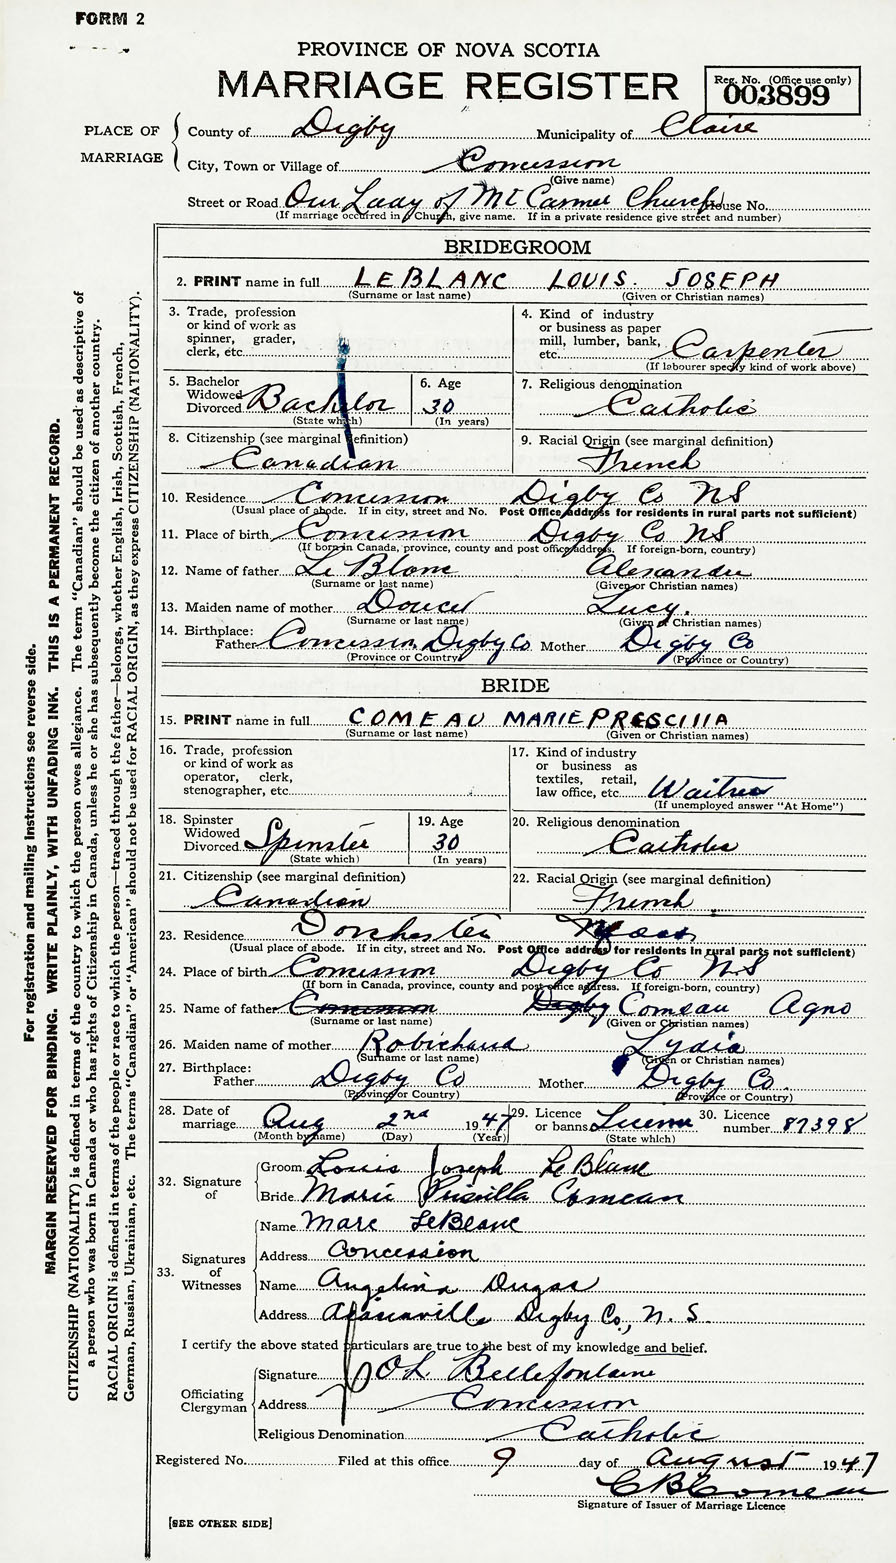 FORM 2
PROVINCE OF NOVA SCOTIA
MARRIAGE REGISTER
Reg. No. (Office use only)
003899
PLACE OF MARRIAGE
County of Digby Municipality of Claire
City, Town or Village of Concession
(Give name)
Street or Road Our Lady of Mt Carmel Church House No.
(If marriage occurred in Church, give name. If in a private residence give street and number)
BRIDEGROOM
2. PRINT name in full LEBLANC LOUIS. JOSEPH
(Surname or last name) (Given or Christian names)
3. Trade, profession
or kind of work as
spinner, grader,
clerk, etc.
4. Kind of industry
or business as paper
mill, lumber, bank,
etc. Carpenter
(If labourer specify kind of work above)
5. Bachelor
Widowed
Divorced Bachelor
(State which)
6. Age
30
(In years)
7. Religious denomination
Catholic
8. Citizenship (see marginal definition)
Canadian
9. Racial Origin (see marginal definition)
French
10. Residence Concession Digby Co NS
(Usual place of abode. If in city, street and No. Post Office address for residents in rural parts not sufficient)
11. Place of birth Concession Digby Co NS
(If born in Canada, province, county and post office address. If foreign-born, country)
12. Name of father LeBlanc Alexandre
(Surname or last name) (Given or Christian names)
13. Maiden name of mother Doucet Lucy.
(Surname or last name) (Given or Christian names)
14. Birthplace:
Father Concession Digby Co Mother Digby Co
(Province or Country) (Province or Country)
BRIDE
15. PRINT name in full COMEAU MARIE PRESCILLA
(Surname or last name) (Given or Christian names)
16. Trade, profession
or kind of work as
operator, clerk,
stenographer, etc.
17. Kind of industry
or business as
textiles, retail,
law office, etc. Waitress
(If unemployed answer "At Home")
18. Spinster
Widowed
Divorced Spinster
(State which)
19. Age
30
(In years)
20. Religious denomination
Catholic
21. Citizenship (see marginal definition)
Canadian
22. Racial Origin (see marginal definition)
French
23. Residence Dorchester Mass
(Usual place of abode. If in city, street and No. Post Office address for residents in rural parts not sufficient)
24. Place of birth Concession Digby Co N.S
(If born in Canada, province, county and post office address. If foreign-born, country)
25. Name of father Concession Digby Comeau Agno
(Surname or last name) (Given or Christian names)
26. Maiden name of mother Robichaud Lydia
(Surname or last name) (Given or Christian names)
27. Birthplace:
Father Digby Co Mother Digby Co.
(Province or Country) (Province or Country)
28. Date of
marriage Aug 2nd 1947
(Month by name) (Day) (Year)
29. Licence
or banns License
(State which)
30. Licence
number 87398
32. Signature of
Groom Louis Joseph LeBlanc
Bride Marie Priscilla Comeau
33. Signatures of Witnesses
Name Marc LeBlanc
Address Concession
Name Angelina Dugas
Address Digby Co., N. S.
I certify the above stated particulars are true to the best of my knowledge and belief.
Officiating Clergyman
Signature Bellefontaine
Address Concession
Religious Denomination Catholic
Registered No. Filed at this office 9 day of August 1947
Comeau
Signature of Issuer of Marriage Licence
[SEE OTHER SIDE]
For registration and mailing Instructions see reverse side.
MARGIN RESERVED FOR BINDING. WRITE PLAINLY, WITH UNFADING INK. THIS IS A PERMANENT RECORD.
CITIZENSHIP (NATIONALITY) is defined in terms of the country to which the person owes allegiance. The term "Canadian" should be used as descriptive of
a person who was born in Canada or who has rights of Citizenship in Canada, unless he or she has subsequently become the citizen of another country.
RACIAL ORIGIN is defined in terms of the people or race to which the person—traced through the father—belongs, whether English, Irish, Scottish, French,
German, Russian, Ukrainian, etc. The terms "Canadian" or "American" should not be used for RACIAL ORIGIN, as they express CITIZENSHIP (NATIONALITY).